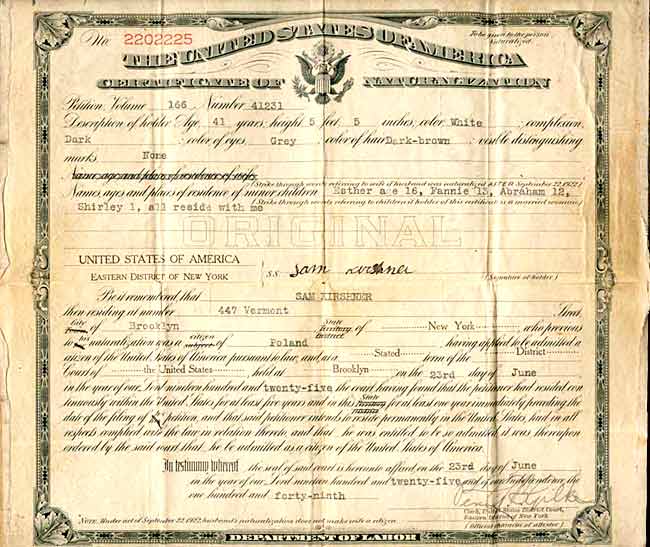 No. 2202225
To be given to the person Naturalized.
THE UNITED STATES OF AMERICA
CERTIFICATE OF NATURALIZATION
Petition, Volume 166 Number 41231
Description of holder: Age, 41 years; height, 5 feet, 5 inches; color, White; complexion,
Dark; color of eyes, Grey; color of hair, Dark-brown; visible distinguishing
marks, None
Names, ages and places of residence of wife
(Strike through words referring to wife if husband was naturalized AFTER September 22, 1922)
Names, ages and places of residence of minor children Esther age 16, Fannie 13, Abraham 12,
Shirley 1, all reside with me
(Strike through words referring to children if holder of this certificate is a married woman)
ORIGINAL
UNITED STATES OF AMERICA
EASTERN DISTRICT OF NEW YORK
S.S.
Sam Kirshner
(Signature of holder)
Be it remembered, that SAM KIRSHNER
then residing at number 447 Vermont Street,
City of Brooklyn State Territory District of New York, who previous
to his naturalization was a citizen subject of Poland, having applied to be admitted a
citizen of the United States of America pursuant to law, and at a Stated term of the District
Court of the United States held at Brooklyn on the 23rd day of June
in the year of our Lord nineteen hundred and twenty-five the court having found that the petitioner had resided con
tinuously within the United States for at least five years and in this State Territory for at least one year immediately preceding the
date of the filing of his petition, and that said petitioner intends to reside permanently in the United States, had in all
respects complied with the law in relation thereto, and that he was entitled to be so admitted, it was thereupon
ordered by the said court that he be admitted as a citizen of the United States of America.
In testimony whereof the seal of said court is hereunto affixed on the 23rd day of June
in the year of our Lord nineteen hundred and twenty-five and of our Independence the
one hundred and forty-ninth
Clerk, United States District Court,
Eastern District of New York
(Official character of attestor)
Note. Under act of September 22, 1922, husband's naturalization does not make wife a citizen.
DEPARTMENT OF LABOR